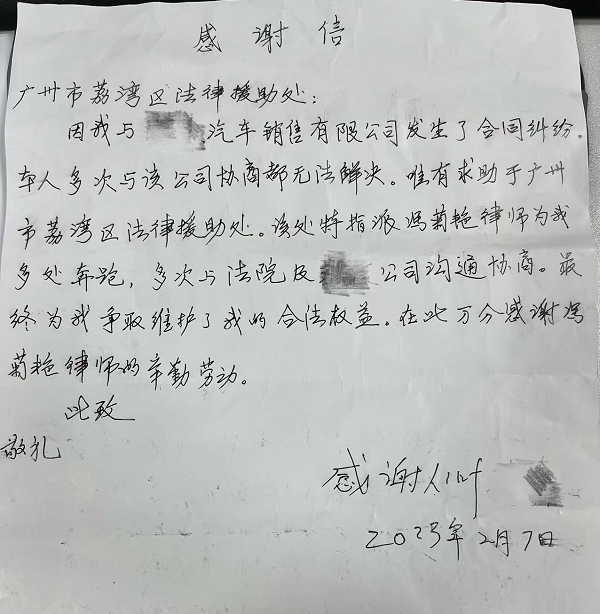 感谢信
广州市荔湾区法律援助处:
因我与汽车销售有限公司发生了合同纠纷.
本人多次与该公司协商都无法解决。唯有求助于广州
市荔湾区法律援助处。该处特指派冯菊艳律师为我
多处奔跑，多次与法院及公司沟通协商。最
终为我争取维护了我的合法权益。在此万分感谢冯
菊艳律师的辛勤劳动。
此致
敬礼
感谢人叶
2023年2月7日